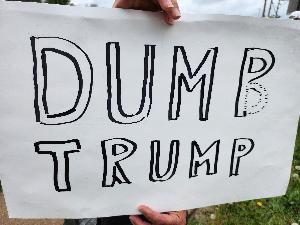 DUMB
TRUMP